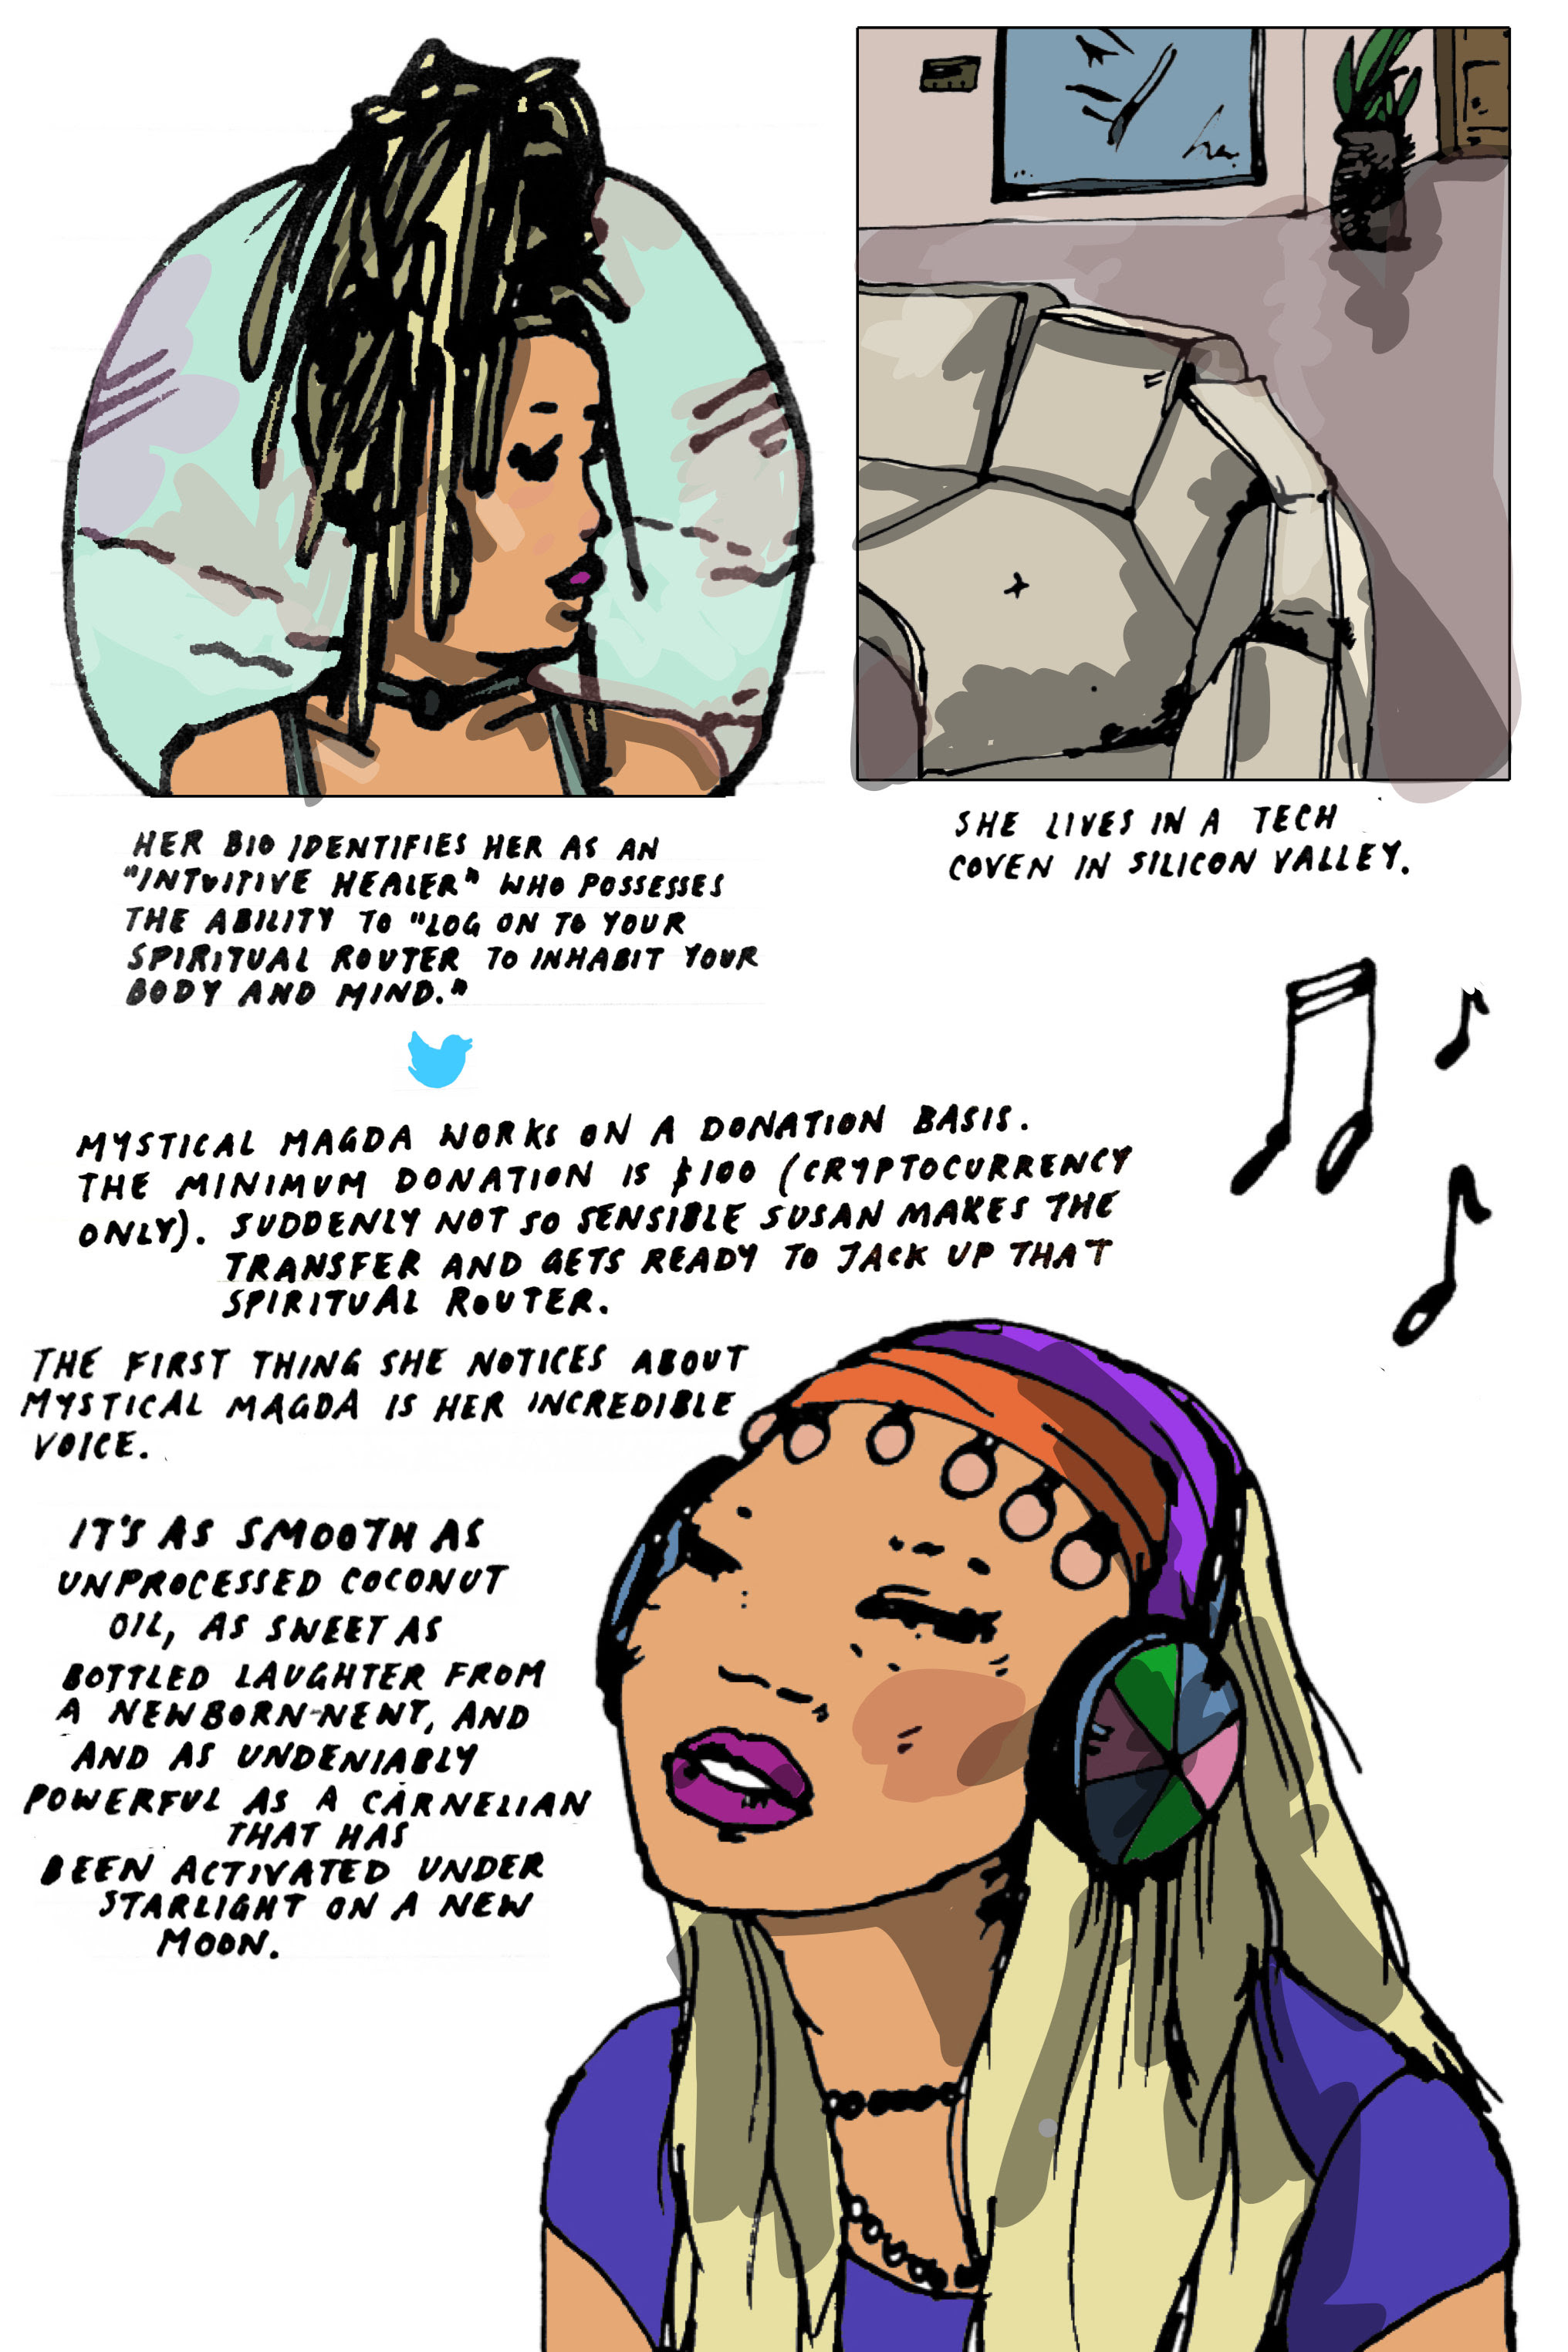 HER BIO IDENTIFIES HER AS AN
"INTUITIVE HEALER" WHO POSSESSES
THE ABILITY TO "LOG ON TO YOUR
SPIRITUAL ROUTER TO INHABIT YOUR
BODY AND MIND."
SHE LIVES IN A TECH
COVEN IN SILICON VALLEY.
MYSTICAL MAGDA WORKS ON A DONATION BASIS.
THE MINIMUM DONATION IS $100 (CRYPTOCURRENCY
ONLY). SUDDENLY NOT SO SENSIBLE SUSAN MAKES THE
TRANSFER AND GETS READY TO JACK UP THAT
SPIRITUAL ROUTER.
THE FIRST THING SHE NOTICES ABOUT
MYSTICAL MAGDA IS HER INCREDIBLE
VOICE.
IT'S AS SMOOTH AS
UNPROCESSED COCONUT
OIL, AS SWEET AS
BOTTLED LAUGHTER FROM
A NEWBORN-NEWT, AND
AND AS UNDENIABLY
POWERFUL AS A CARNELIAN
THAT HAS
BEEN ACTIVATED UNDER
STARLIGHT ON A NEW
MOON.